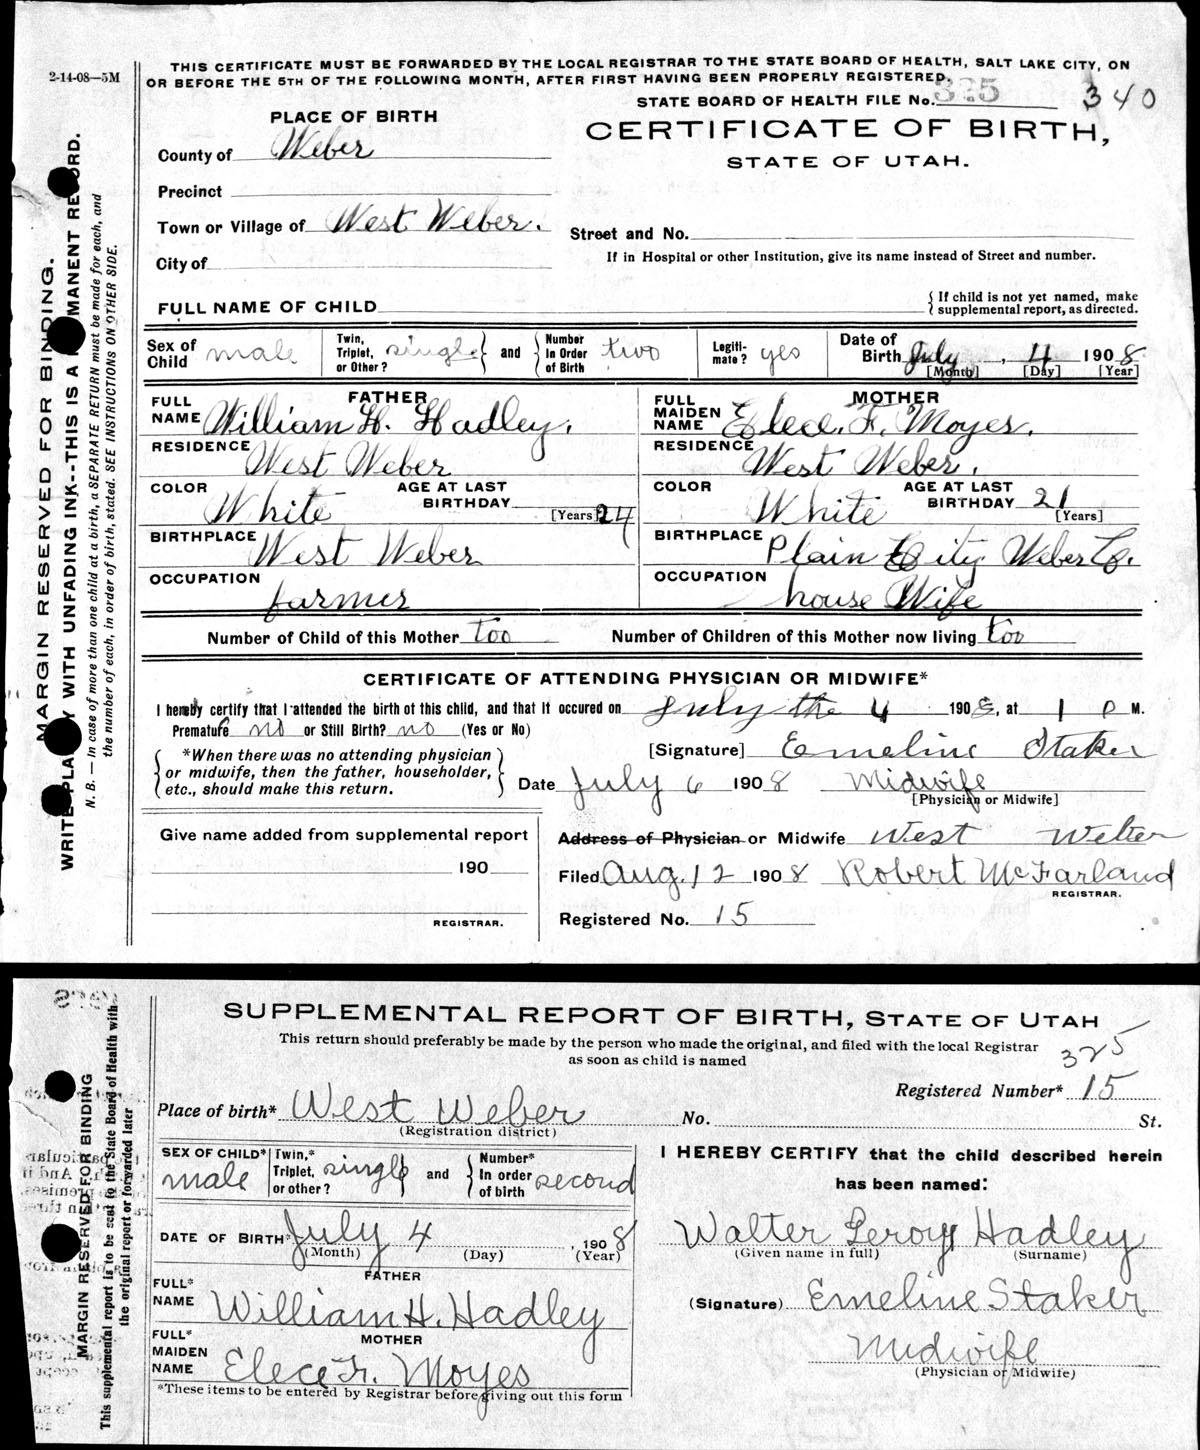 2-14-08—5M
THIS CERTIFICATE MUST BE FORWARDED BY THE LOCAL REGISTRAR TO THE STATE BOARD OF HEALTH, SALT LAKE CITY, ON
OR BEFORE THE 5TH OF THE FOLLOWING MONTH, AFTER FIRST HAVING BEEN PROPERLY REGISTERED.
STATE BOARD OF HEALTH FILE No. 325 340
PLACE OF BIRTH
CERTIFICATE OF BIRTH,
STATE OF UTAH.
County of Weber
Precinct
Town or Village of West Weber.
Street and No.
City of
If in Hospital or other Institution, give its name instead of Street and number.
FULL NAME OF CHILD { If child is not yet named, make
supplemental report, as directed.
Sex of Child male Twin, Triplet, or Other? single } and { Number In Order of Birth two Legiti-mate? yes Date of Birth July, 4 1908
[Month] [Day] [Year]
FATHER MOTHER
FULL NAME William H. Hadley. FULL MAIDEN NAME Elece. F. Moyes.
RESIDENCE West Weber RESIDENCE West Weber.
COLOR White AGE AT LAST BIRTHDAY [Years] 24 COLOR White AGE AT LAST BIRTHDAY 21 [Years]
BIRTHPLACE West Weber BIRTHPLACE Plain City Weber Co.
OCCUPATION farmer OCCUPATION house Wife
Number of Child of this Mother too Number of Children of this Mother now living too
CERTIFICATE OF ATTENDING PHYSICIAN OR MIDWIFE*
I hereby certify that I attended the birth of this child, and that it occured on July the 4 1908, at 1 P M.
Premature no or Still Birth? no (Yes or No)
*When there was no attending physician
or midwife, then the father, householder,
etc., should make this return.
[Signature] Emeline Staker
Date July 6 1908 Midwife
[Physician or Midwife]
Give name added from supplemental report
190
REGISTRAR.
Address of Physician or Midwife West Weber
Filed Aug. 12 1908 Robert McFarland
REGISTRAR.
Registered No. 15
MARGIN RESERVED FOR BINDING.
WRITE PLAINLY WITH UNFADING INK--THIS IS A PERMANENT RECORD.
N. B. — In case of more than one child at a birth, a SEPARATE RETURN must be made for each, and
the number of each, in order of birth, stated. SEE INSTRUCTIONS ON OTHER SIDE.
SUPPLEMENTAL REPORT OF BIRTH, STATE OF UTAH
This return should preferably be made by the person who made the original, and filed with the local Registrar
as soon as child is named
325
Registered Number* 15
Place of birth* West Weber No. St.
(Registration district)
SEX OF CHILD* male Twin,* Triplet, or other? single } and { Number* In order of birth second
DATE OF BIRTH* July 4, 1908
(Month) (Day) (Year)
FATHER
FULL* NAME William H. Hadley
MOTHER
FULL* MAIDEN NAME Elece F. Moyes
*These items to be entered by Registrar before giving out this form
I HEREBY CERTIFY that the child described herein
has been named:
Walter Leroy Hadley
(Given name in full) (Surname)
(Signature) Emeline Staker
Midwife
(Physician or Midwife)
MARGIN RESERVED FOR BINDING
This supplemental report is to be sent to the State Board of Health with
the original report or forwarded later